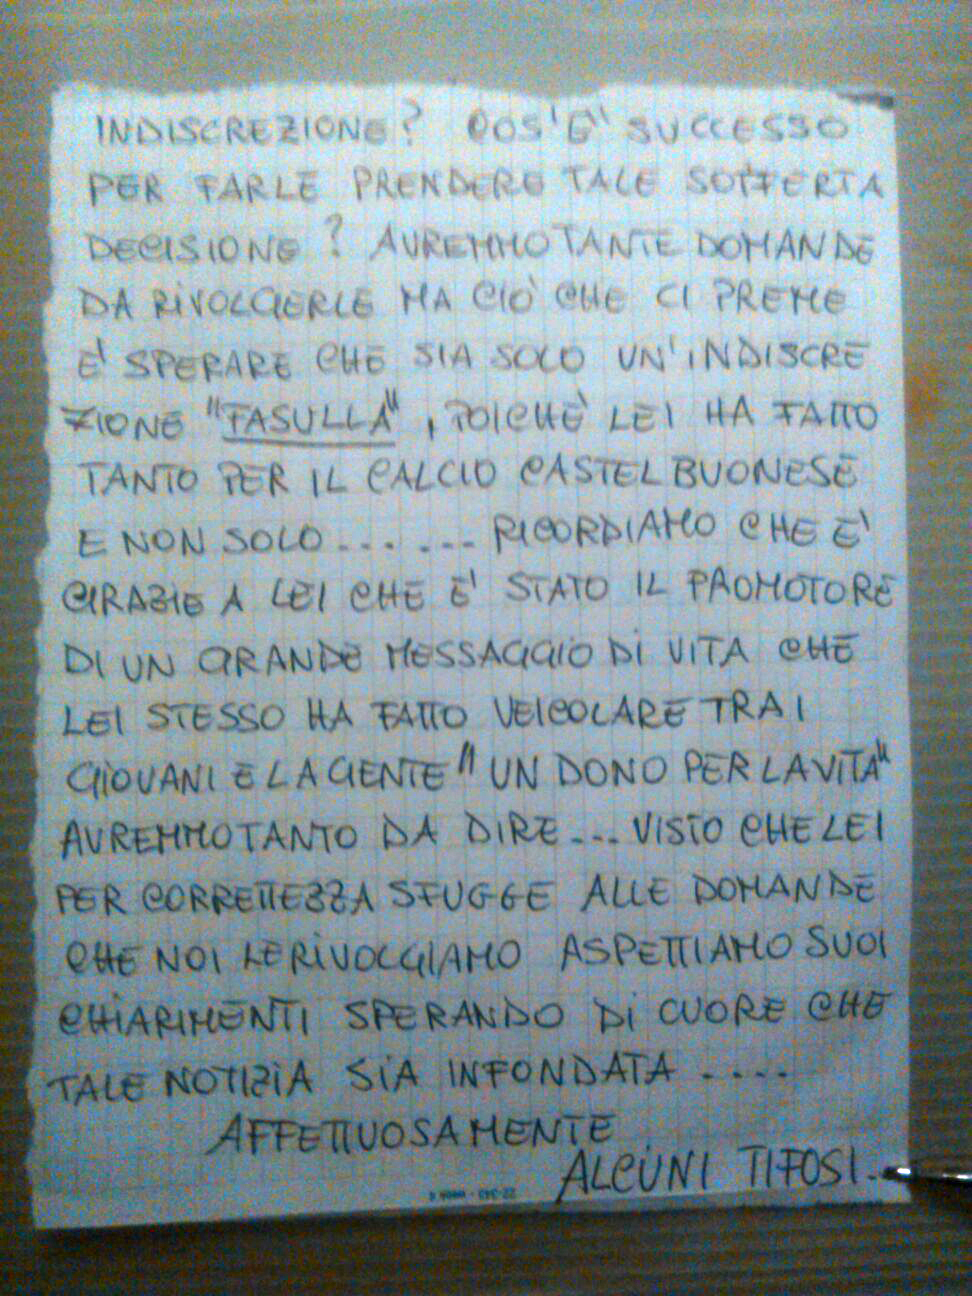 INDISCREZIONE? COS'E" SUCCESSO
PER FARLE PRENDERE TALE SOFFERTA
DECISIONE? AVREMMO TANTE DOMANDE
DA RIVOLGIERLE MA CIÒ CHE CI PREME
E' SPERARE CHE SIA SOLO UN'INDISCRE
ZIONE "FASULLA", POICHÈ LEI HA FATTO
TANTO PER IL CALCIO CASTELBUONESE
E NON SOLO....... RICORDIAMO CHE E'
GRAZIE A LEI CHE E' STATO IL PROMOTORE
DI UN GRANDE MESSAGGIO DI VITA CHE
LEI STESSO HA FATTO VEICOLARE TRA I
GIOVANI E LA GENTE "UN DONO PER LA VITA"
AVREMMO TANTO DA DIRE... VISTO CHE LEI
PER CORRETTEZZA SFUGGE ALLE DOMANDE
CHE NOI LE RIVOLGIAMO ASPETTIAMO SUOI
CHIARIMENTI SPERANDO DI CUORE CHE
TALE NOTIZIA SIA INFONDATA ....
AFFETTUOSAMENTE
ALCUNI TIFOSI..